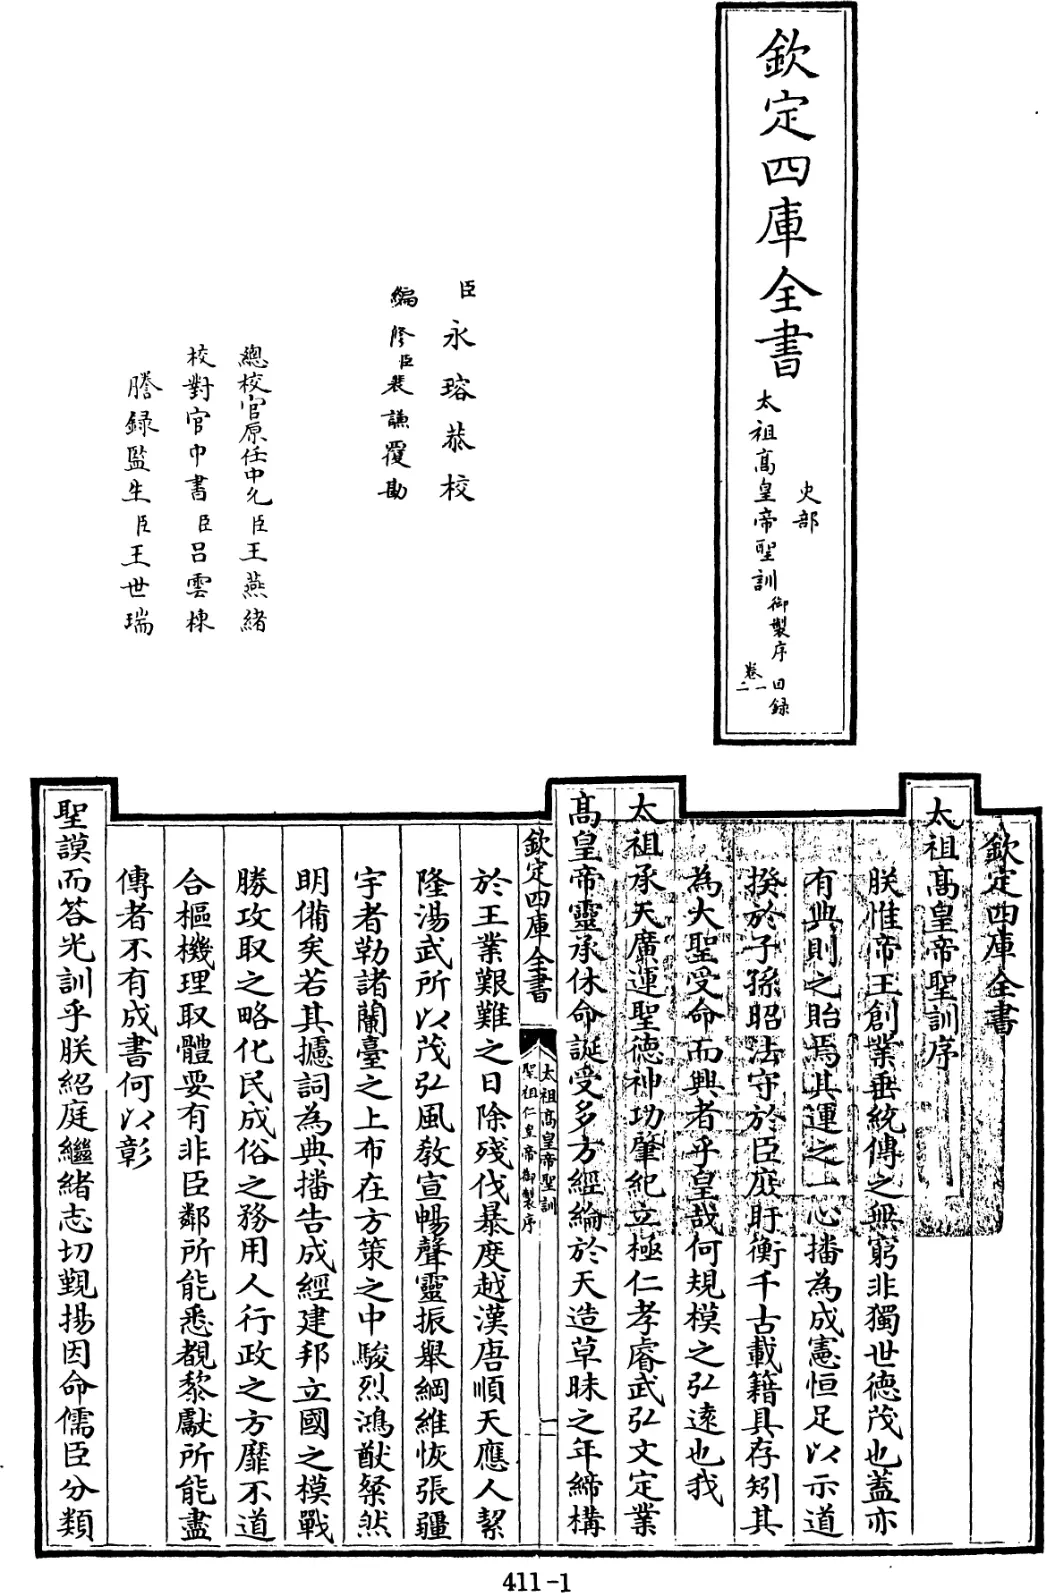 欽定四庫全書
史部
太祖高皇帝聖訓
御製序
目録
卷一
二
臣永瑢恭校
編修臣裴謙覆勘
總校官原任中允臣王燕緒
校對官中書臣呂雲棟
謄録監生臣王世瑞
欽定四庫全書
太祖高皇帝聖訓序
朕惟帝王創業垂統傳之無窮非獨世德茂也蓋亦
有典則之貽焉其運之一心播為成憲恒足以示道
揆於子孫昭法守於臣庶盱衡千古載籍具存矧其
為大聖受命而興者乎皇哉何規模之弘逺也我
太祖承天廣運聖德神功肇紀立極仁孝睿武弘文定業
高皇帝靈承休命誕受多方經綸於天造草昧之年締構
欽定四庫全書
太祖高皇帝聖訓
聖祖仁皇帝御製序
一
於王業艱難之日除殘伐暴度越漢唐順天應人絜
隆湯武所以茂弘風教宣暢聲靈振舉綱維恢張疆
宇者勒諸蘭臺之上布在方策之中駿烈鴻猷粲然
明備矣若其攄詞為典播告成經建邦立國之模戰
勝攻取之略化民成俗之務用人行政之方靡不道
合樞機理取體要有非臣鄰所能悉覩黎獻所能盡
傳者不有成書何以彰
聖謨而答光訓乎朕紹庭繼緒志切覲揚因命儒臣分類
411-1